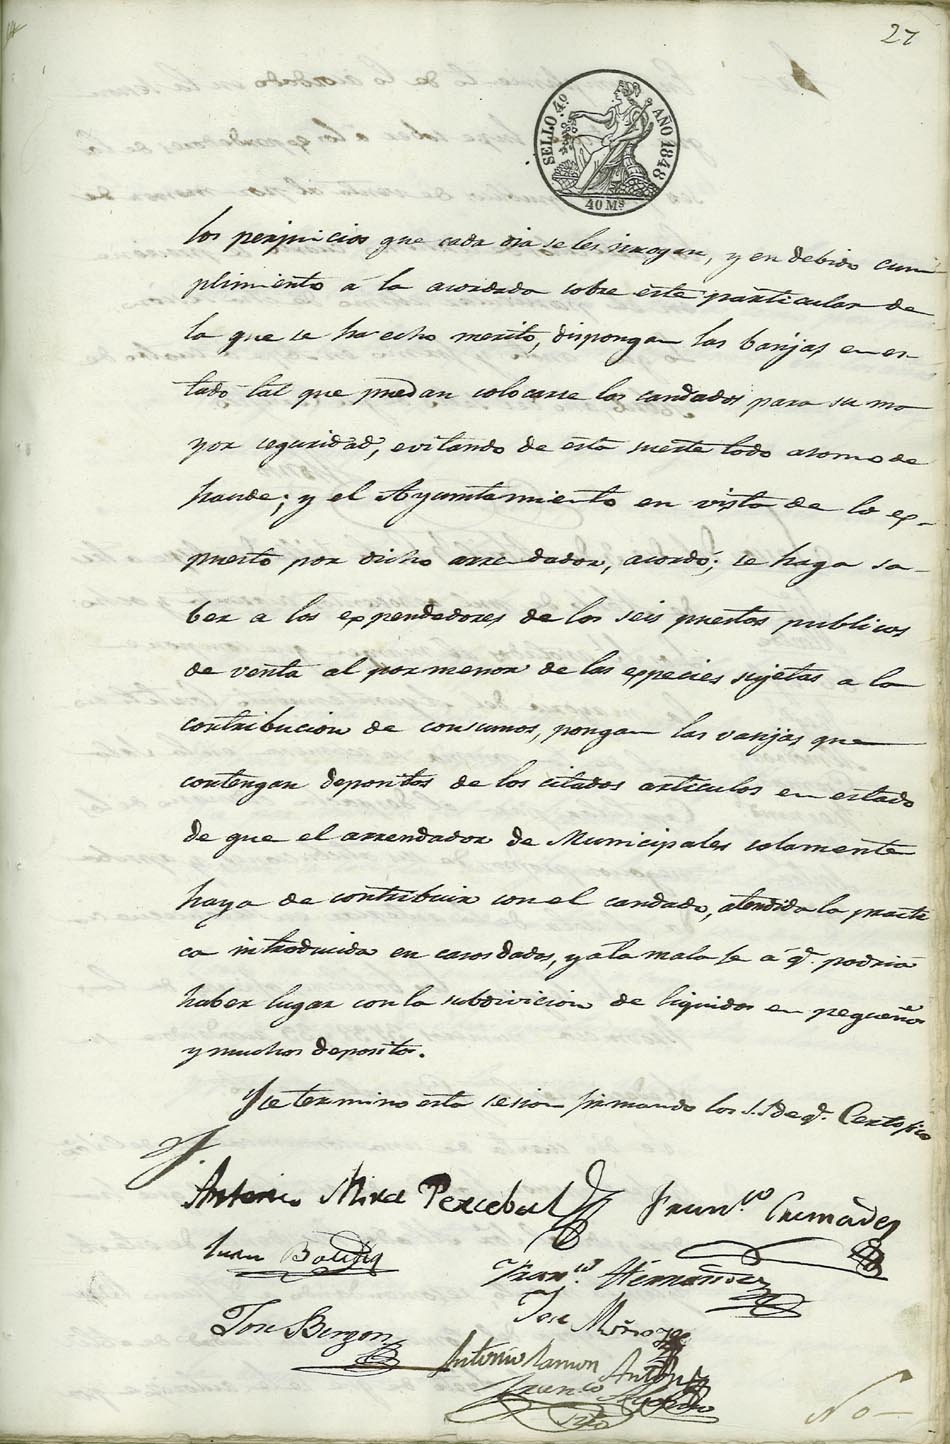 27
SELLO 4º AÑO 1848
40 Ms
los perjuicios que cada dia se les irrogan, y en debido cum
plimiento á lo acordado sobre este particular de
lo que se ha echo merito, dispongan las banjas en es-
tado tal que puedan colocarse los candados para su ma
yor seguridad, evitando de esta suerte todo asomo de
fraude; y el Ayuntamiento en vista de lo ex-
puesto por dicho arrendador, acordó; se haga sa-
ber a los expendedores de los seis puestos publicos
de venta al por menor de las especies sujetas a la
contribucion de consumos, pongan las vanjas que
contengan depositos de los citados articulos en estado
de que el arrendador de Municipales solamente
haya de contribuir con el candado, atendida la practi
ca introducida en casos dados, y a la mala fe á q.e podria
haber lugar con la subdivicion de liquidos en pequeños
y muchos depositos.
Y se termino esta sesion firmando los S.S. de q.e Certifico
Antonio Mira Percebal Fran.co Cremades
Juan Fran.co Hernandez
Jose
Jose
Antonio Ramon Antón
Franco
Srio
No